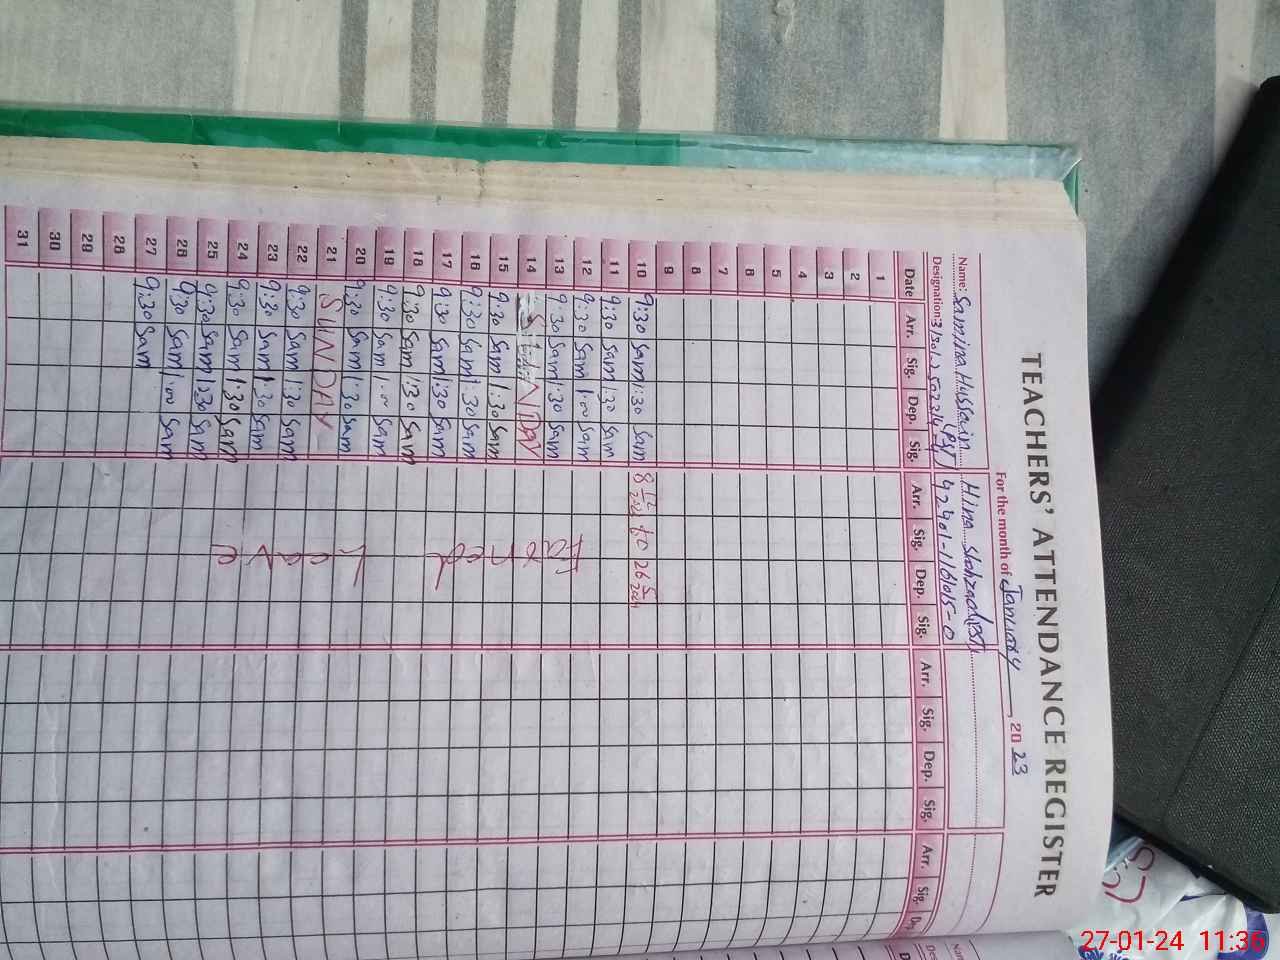 TEACHERS' ATTENDANCE REGISTER
For the month of January, 2023
Name: Samina Hussain (PST) Hina Shahzad (PST)
Designation: 42401-1161615-0
Date Arr. Sig. Dep. Sig. Arr. Sig. Dep. Sig. Arr. Sig. Dep. Sig. Arr. Sig.
1
2
3
4
5
6
7
8
9
10 9:30 Sam 1:30 Sam 8 12 2023 to 26 5 2024
11 9:30 Sam 1:30 Sam
12 9:30 Sam 1:00 Sam
13 9:30 Sam 1:30 Sam
14 SUNDAY
15 9:30 Sam 1:30 Sam
16 9:30 Sam 1:30 Sam
17 9:30 Sam 1:30 Sam
18 9:30 Sam 1:30 Sam
19 9:30 Sam 1:00 Sam
20 9:30 Sam 1:30 Sam
21 SUNDAY
22 9:30 Sam 1:30 Sam
23 9:30 Sam 1:30 Sam
24 9:30 Sam 1:30 Sam
25 9:30 Sam 1:30 Sam
26 9:30 Sam 1:00 Sam
27 9:30 Sam
28
29
30
31
Earned
Leave
27-01-24 11:36